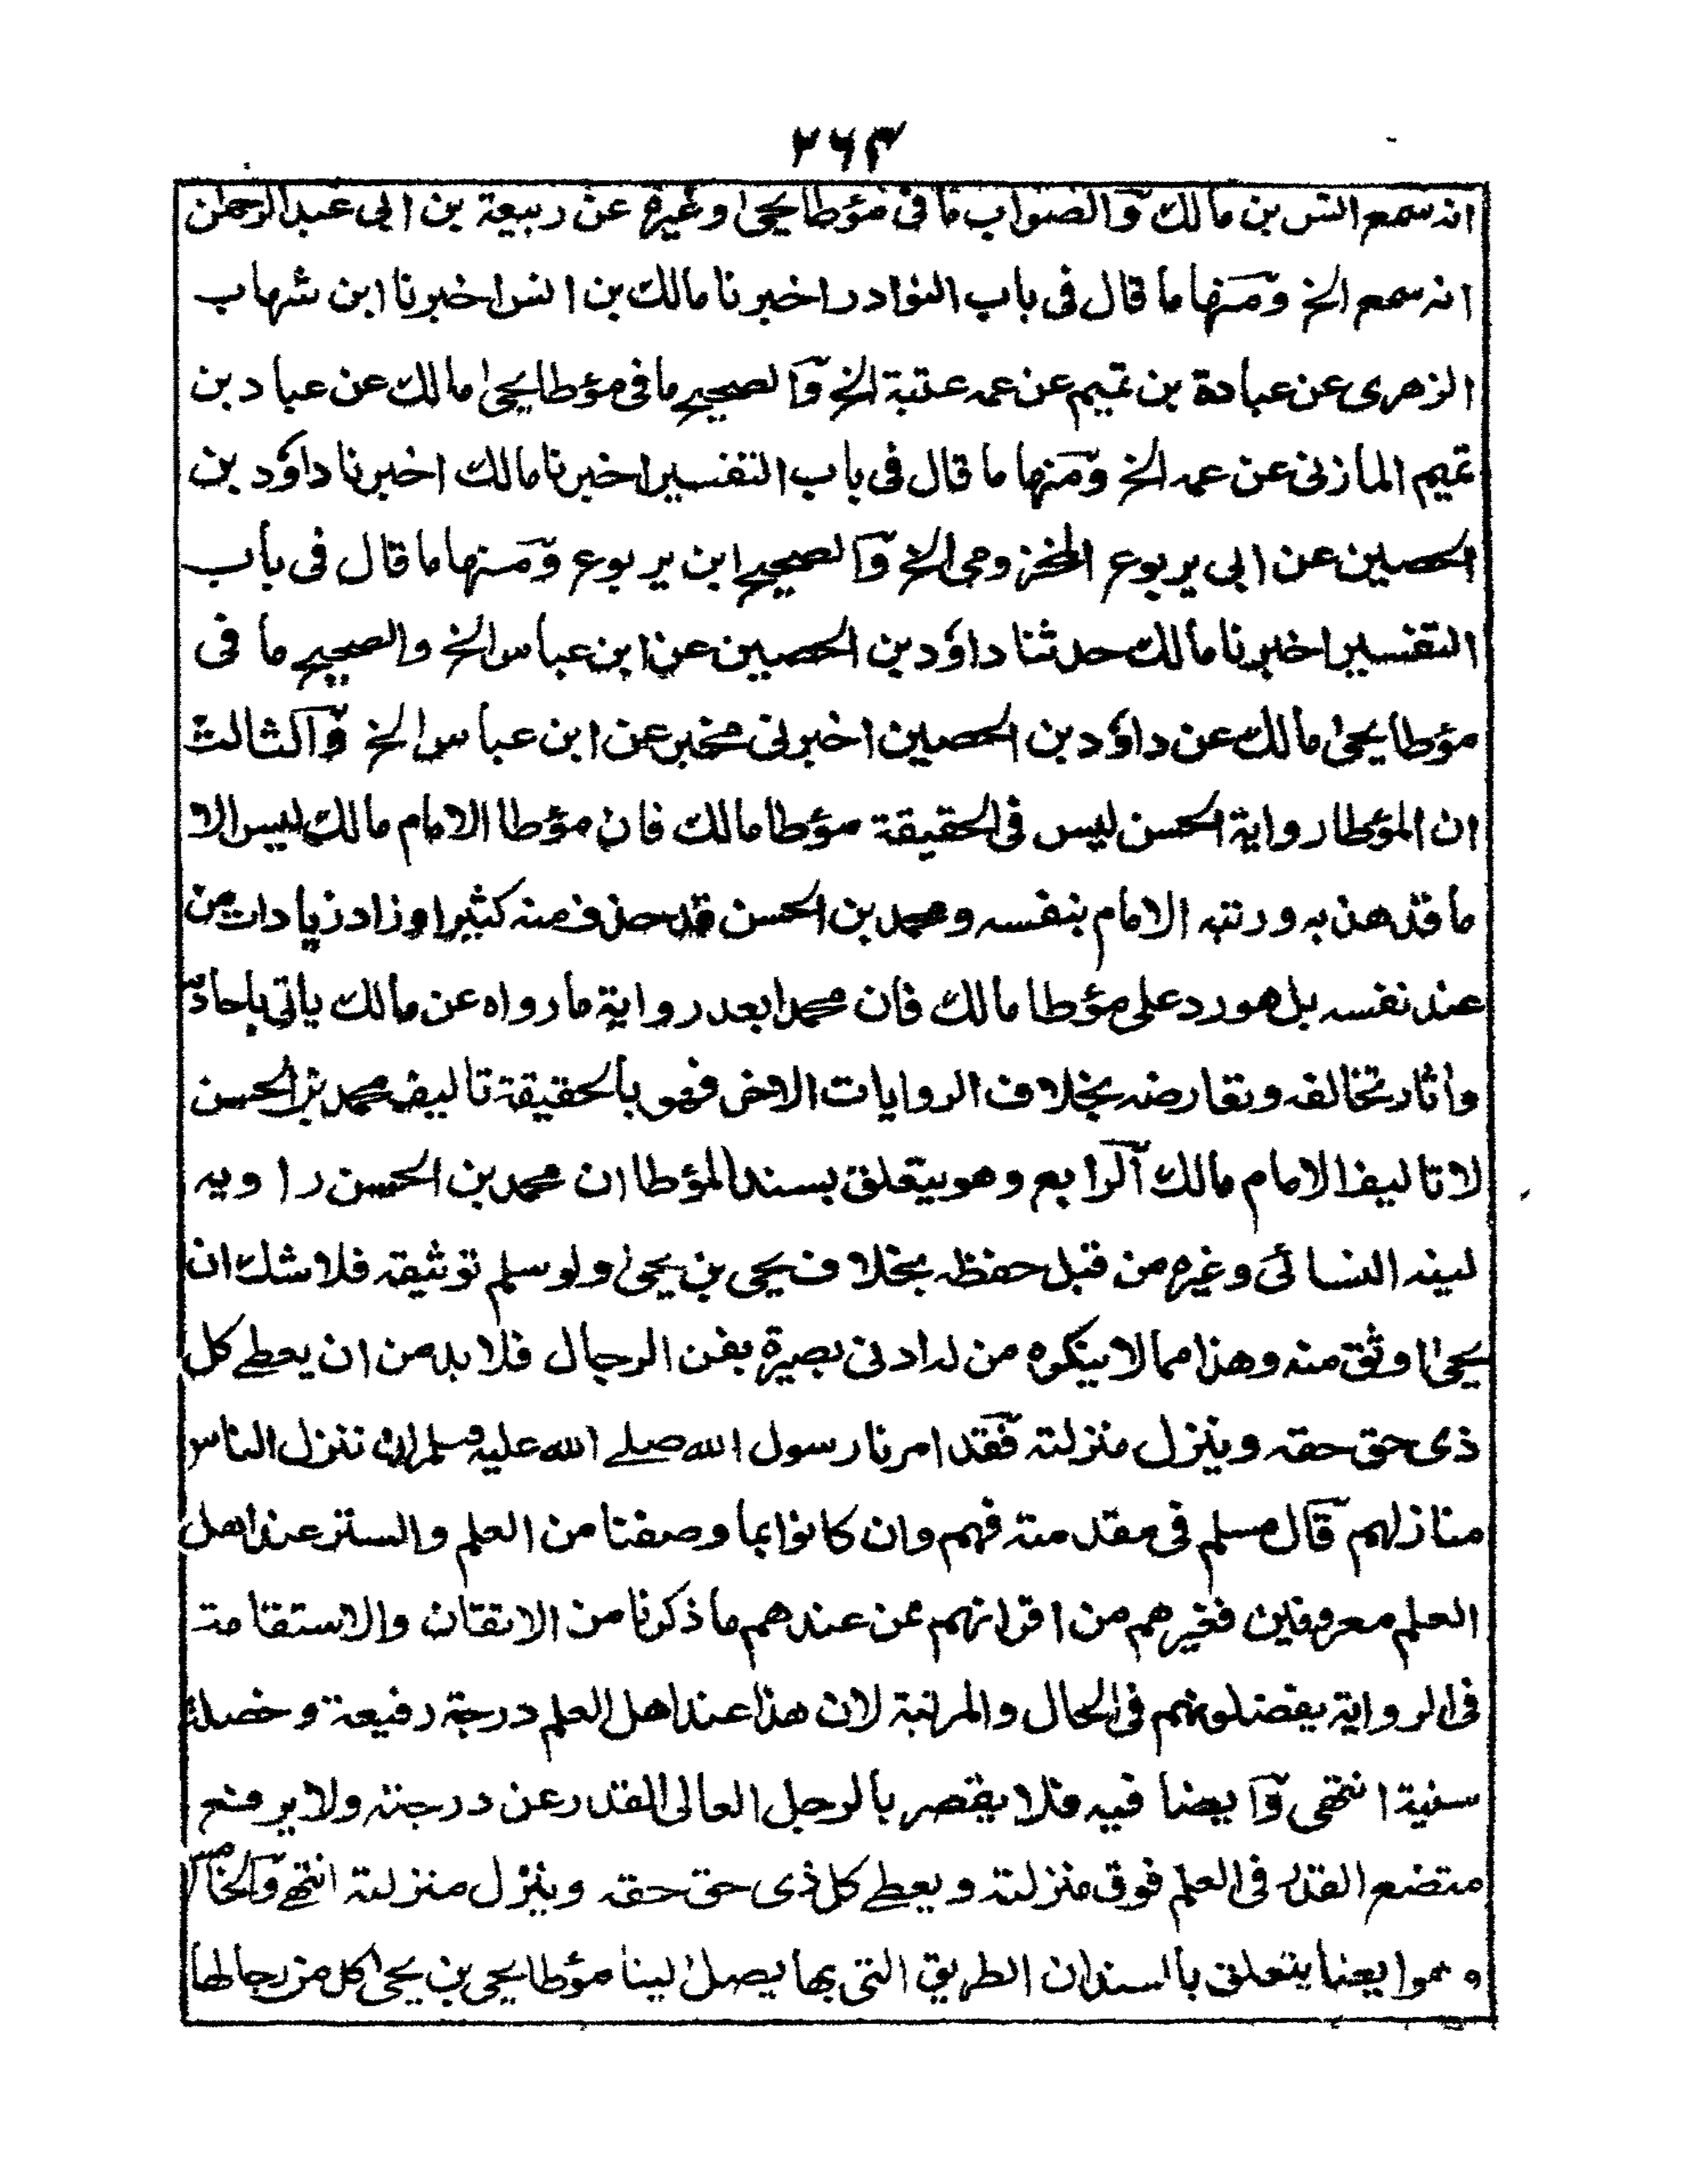 ٢٦٣
انه سمع انس بن مالك والصواب ما فى مؤطا يحيى وغيره عن ربيعة بن ابى عبد الرحمن
انه سمع الخ ومنها ما قال فى باب النوادر اخبرنا مالك بن انس اخبرنا ابن شهاب
الزهرى عن عبادة بن تميم عن عمه عتبة الخ والصحيح ما فى مؤطا يحيى مالك عن عباد بن
تميم المازنى عن عمه الخ ومنها ما قال فى باب التفسير اخبرنا مالك اخبرنا داؤد بن
الحصين عن ابى يربوع المخزومى الخ والصحيح ابن يربوع ومنها ما قال فى باب
التفسير اخبرنا مالك حدثنا داؤد بن الحصين عن ابن عباس الخ والصحيح ما فى
مؤطا يحيى مالك عن داؤد بن الحصين اخبرنى مخبر عن ابن عباس الخ والثالث
ان المؤطا رواية الحسن ليس فى الحقيقة مؤطا مالك فان مؤطا الامام مالك ليس الا
ما قد هذبه ورتبه الامام بنفسه ومحمد بن الحسن قد حذف منه كثيرا وزاد زيادات من
عند نفسه بل هو رد على مؤطا مالك فان محمدا بعد رواية ما رواه عن مالك ياتى باحاديث
واثار تخالفه وتعارضه بخلاف الروايات الاخر فهو بالحقيقة تاليف محمد بن الحسن
لا تاليف الامام مالك الرابع وهو يتعلق بسند المؤطا ان محمد بن الحسن راويه
لينه النسائى وغيره من قبل حفظه بخلاف يحيى بن يحيى ولو سلم توثيقه فلا شك ان
يحيى اوثق منه وهذا مما لا ينكره من له ادنى بصيرة بفن الرجال فلا بد من ان يعطے كل
ذى حق حقه وينزل منزلته فقد امرنا رسول الله صلے الله عليه وسلم ان ننزل الناس
منازلهم قال مسلم فى مقدمته فهم وان كانوا بما وصفنا من العلم والستر عند اهل
العلم معروفين فغيرهم من اقرانهم ممن عندهم ما ذكرنا من الاتقان والاستقامة
فى الرواية يفضلونهم فى الحال والمرتبة لان هذا عند اهل العلم درجة رفيعة وخصلة
سنية انتهى وايضا فيه فلا يقصر بالرجل العالى القدر عن درجته ولا يرفع
متضع القدر فى العلم فوق منزلته ويعطے كل ذى حق حقه وينزل منزلته انتهے والخامس
وهو ايضا يتعلق بالسند ان الطريق التى بها يصل الينا مؤطا يحيى بن يحيى كل من رجالها